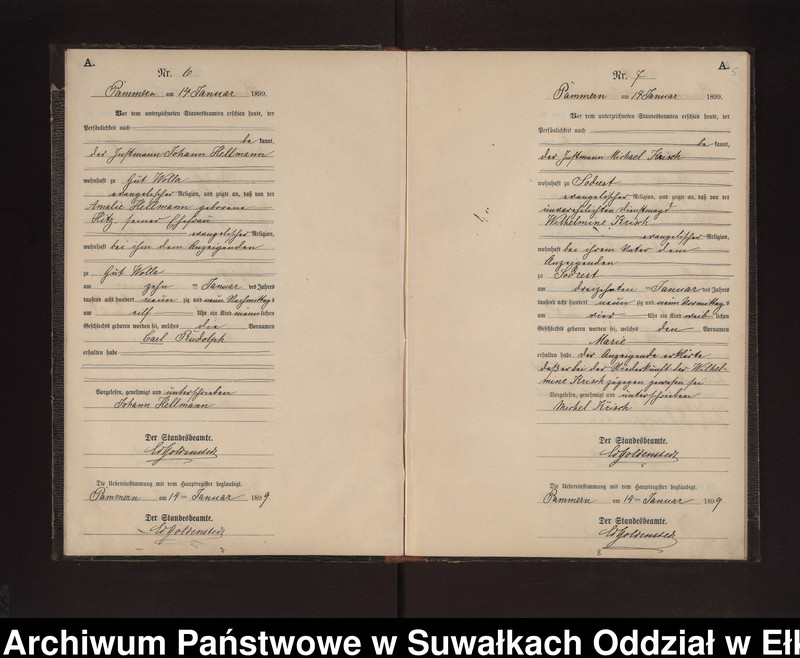 A.
Nr. 6
Pammern am 14 Januar 1899.
Vor dem unterzeichneten Standesbeamten erschien heute, der
Persönlichkeit nach
be kannt,
der Instmann Johann Hellmann
wohnhaft zu Gut Wolla
evangelischer Religion, und zeigte an, daß von der
Amalie Hellmann geborene
Hitz seiner Ehefrau
evangelischer Religion,
wohnhaft bei ihm dem Anzeigenden
zu Gut Wolla
am zehn ten Januar des Jahres
tausend acht hundert neun zig und neun Nachmittags
um elf Uhr ein Kind männlichen
Geschlechts geboren worden sei, welches die Vornamen
Carl Rudolph
erhalten habe
Vorgelesen, genehmigt und unterschrieben
Johann Hellmann
Der Standesbeamte.
Goldenstedt
Die Uebereinstimmung mit dem Hauptregister beglaubigt.
Pammern am 14 ten Januar 1899.
Der Standesbeamte.
Goldenstedt
A.
5
Nr. 7
Pammern am 14 Januar 1899.
Vor dem unterzeichneten Standesbeamten erschien heute, der
Persönlichkeit nach
be kannt,
der Instmann Michael Krisch
wohnhaft zu Sodrest
evangelischer Religion, und zeigte an, daß von der
unverehelichten Dienstmagd
Wilhelmine Krisch
evangelischer Religion,
wohnhaft bei ihrem Vater dem
Anzeigenden
zu Sodrest
am dreizehnten Januar des Jahres
tausend acht hundert neun zig und neun Vormittags
um vier Uhr ein Kind weiblichen
Geschlechts geboren worden sei, welches den Vornamen
Marie
erhalten habe. Der Anzeigende erklärte
daß er bei der Niederkunft der Wilhel-
mine Krisch zugegen gewesen sei
Vorgelesen, genehmigt und unterschrieben
Michel Krisch
Der Standesbeamte.
Goldenstedt
Die Uebereinstimmung mit dem Hauptregister beglaubigt.
Pammern am 14 ten Januar 1899
Der Standesbeamte.
Goldenstedt
8
Archiwum Państwowe w Suwałkach Oddział w Ełk